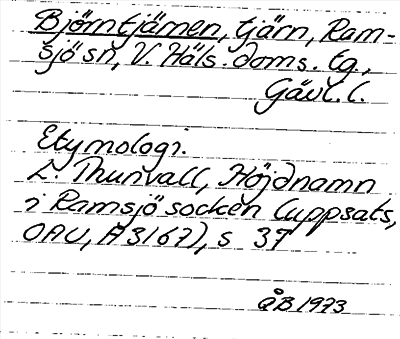 Björntjärnen, tjärn, Ram-
sjö sn, V. Häls. doms. tg,
Gävl. l.
Etymologi.
L. Thunvall, Höjdnamn
i Ramsjö socken (uppsats,
OAU, A3167), s 37
ÅB 1973